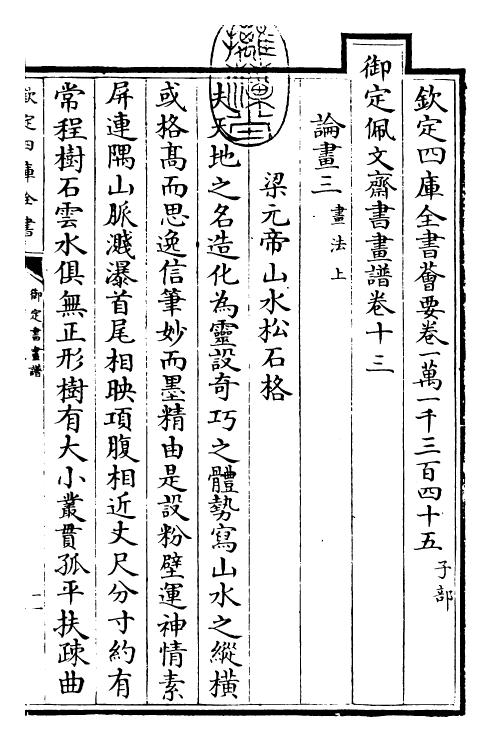 欽定四庫全書薈要卷一萬一千三百四十五 子部
御定佩文齋書畫譜卷十三
論畫三 畫法上
梁元帝山水松石格
夫天地之名造化為靈設奇巧之體勢寫山水之縱橫
或格髙而思逸信筆妙而墨精由是設粉壁運神情素
屏連隅山脈濺瀑首尾相映項腹相近丈尺分寸約有
常程樹石雲水俱無正形樹有大小叢貫孤平扶疎曲
欽定四庫全書
御定書畫譜